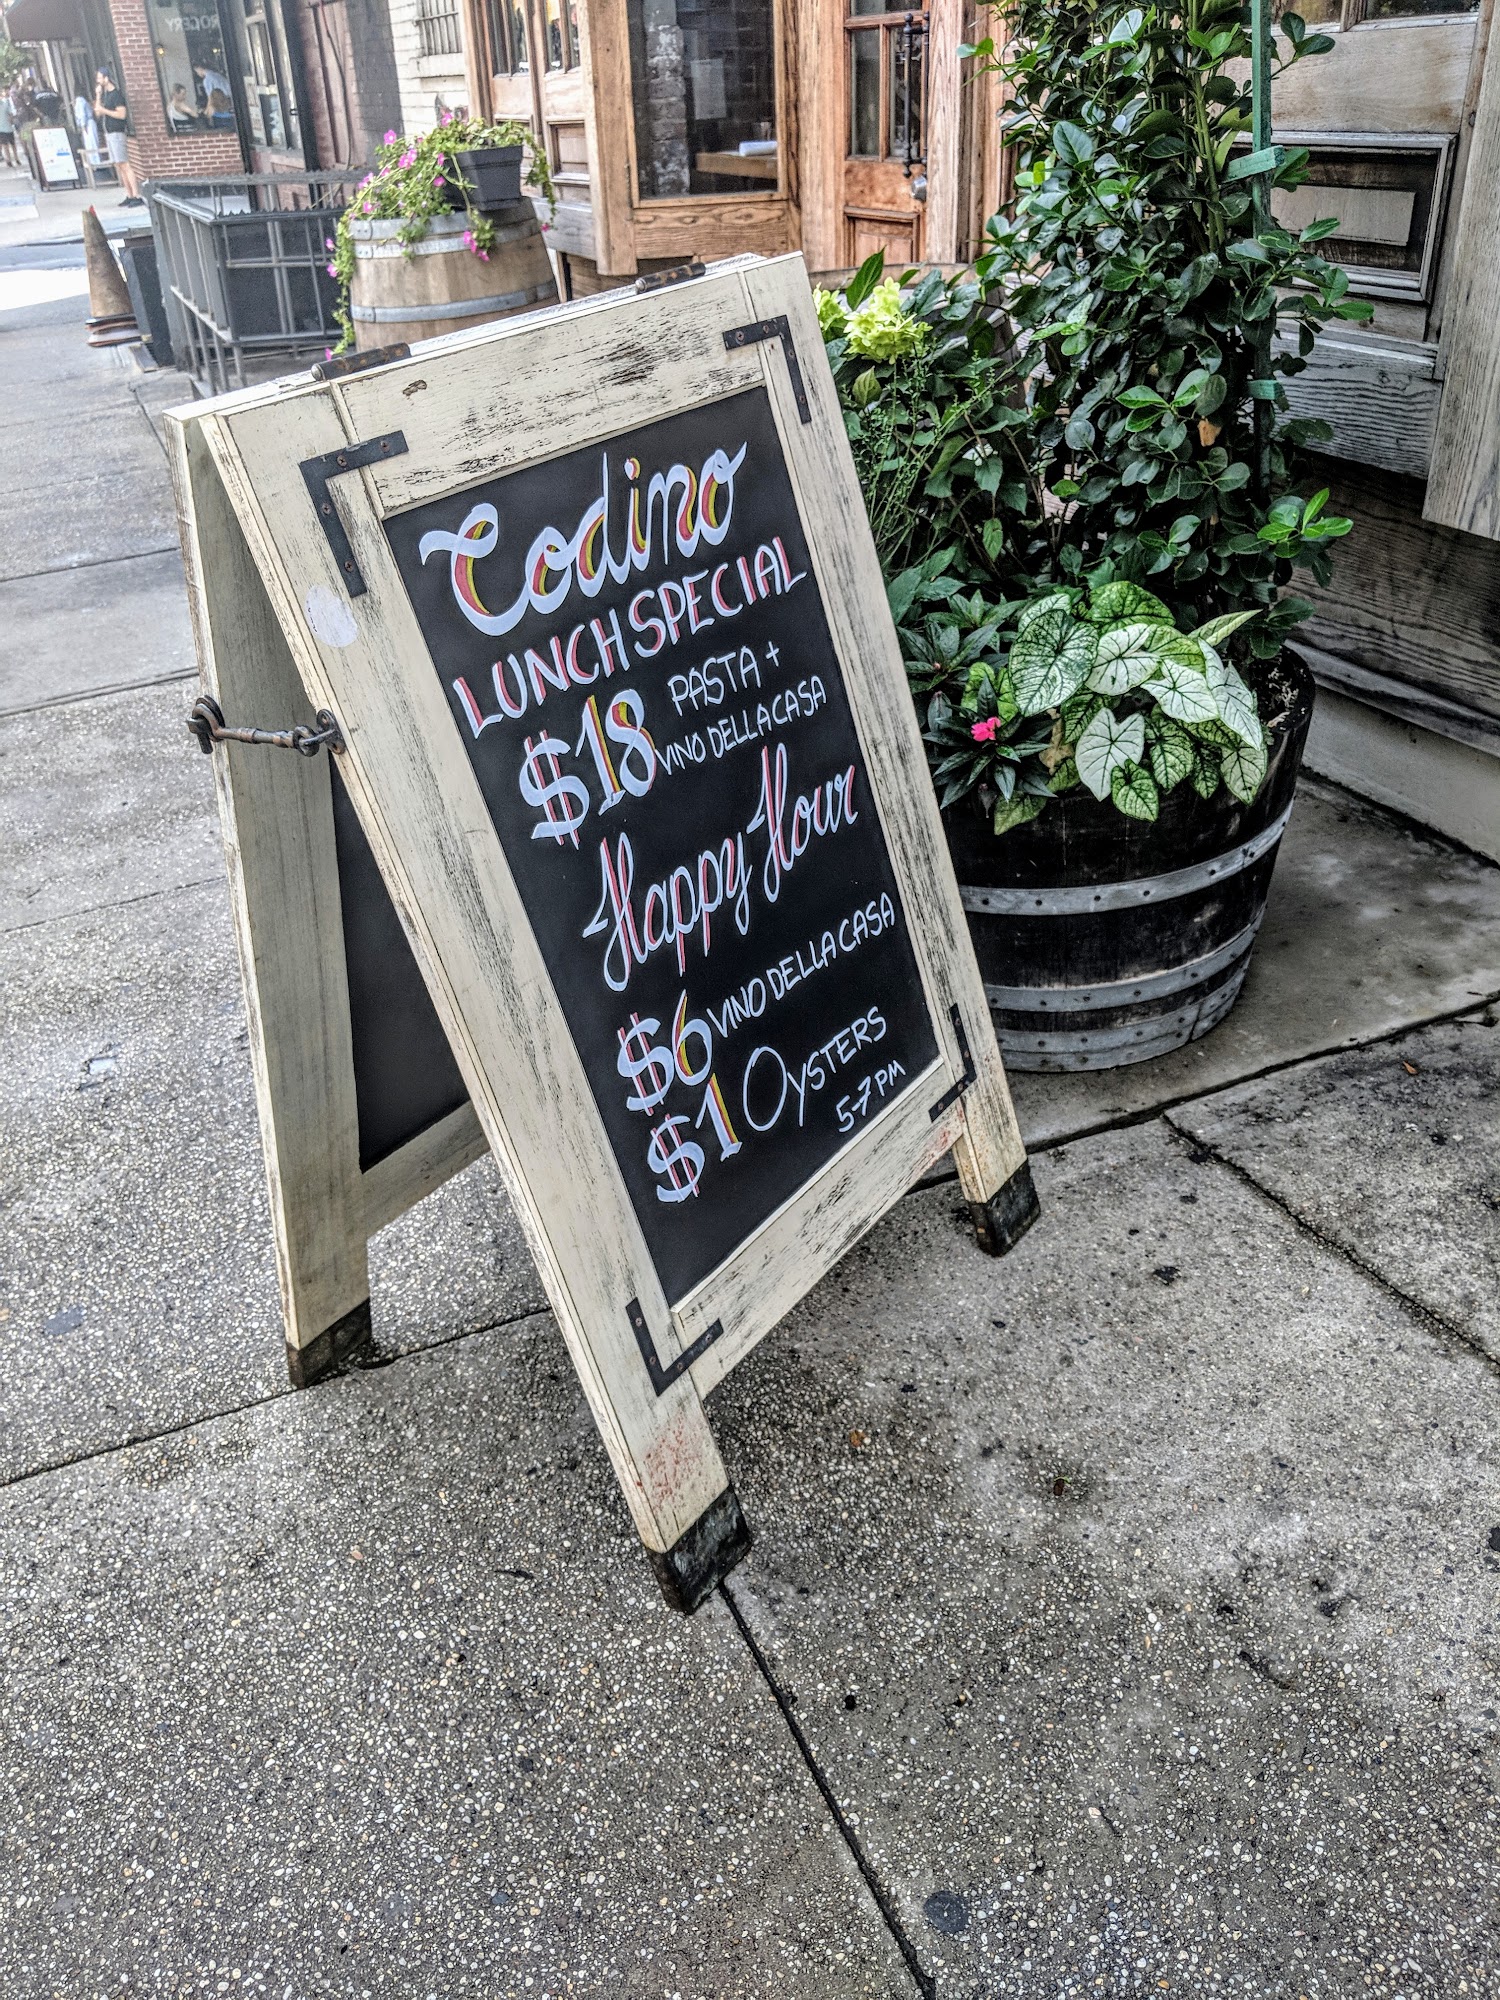 Codino
LUNCH SPECIAL
$18 PASTA +
VINO DELLA CASA
Happy Hour
$6 VINO DELLA CASA
$1 OYSTERS
5-7 PM